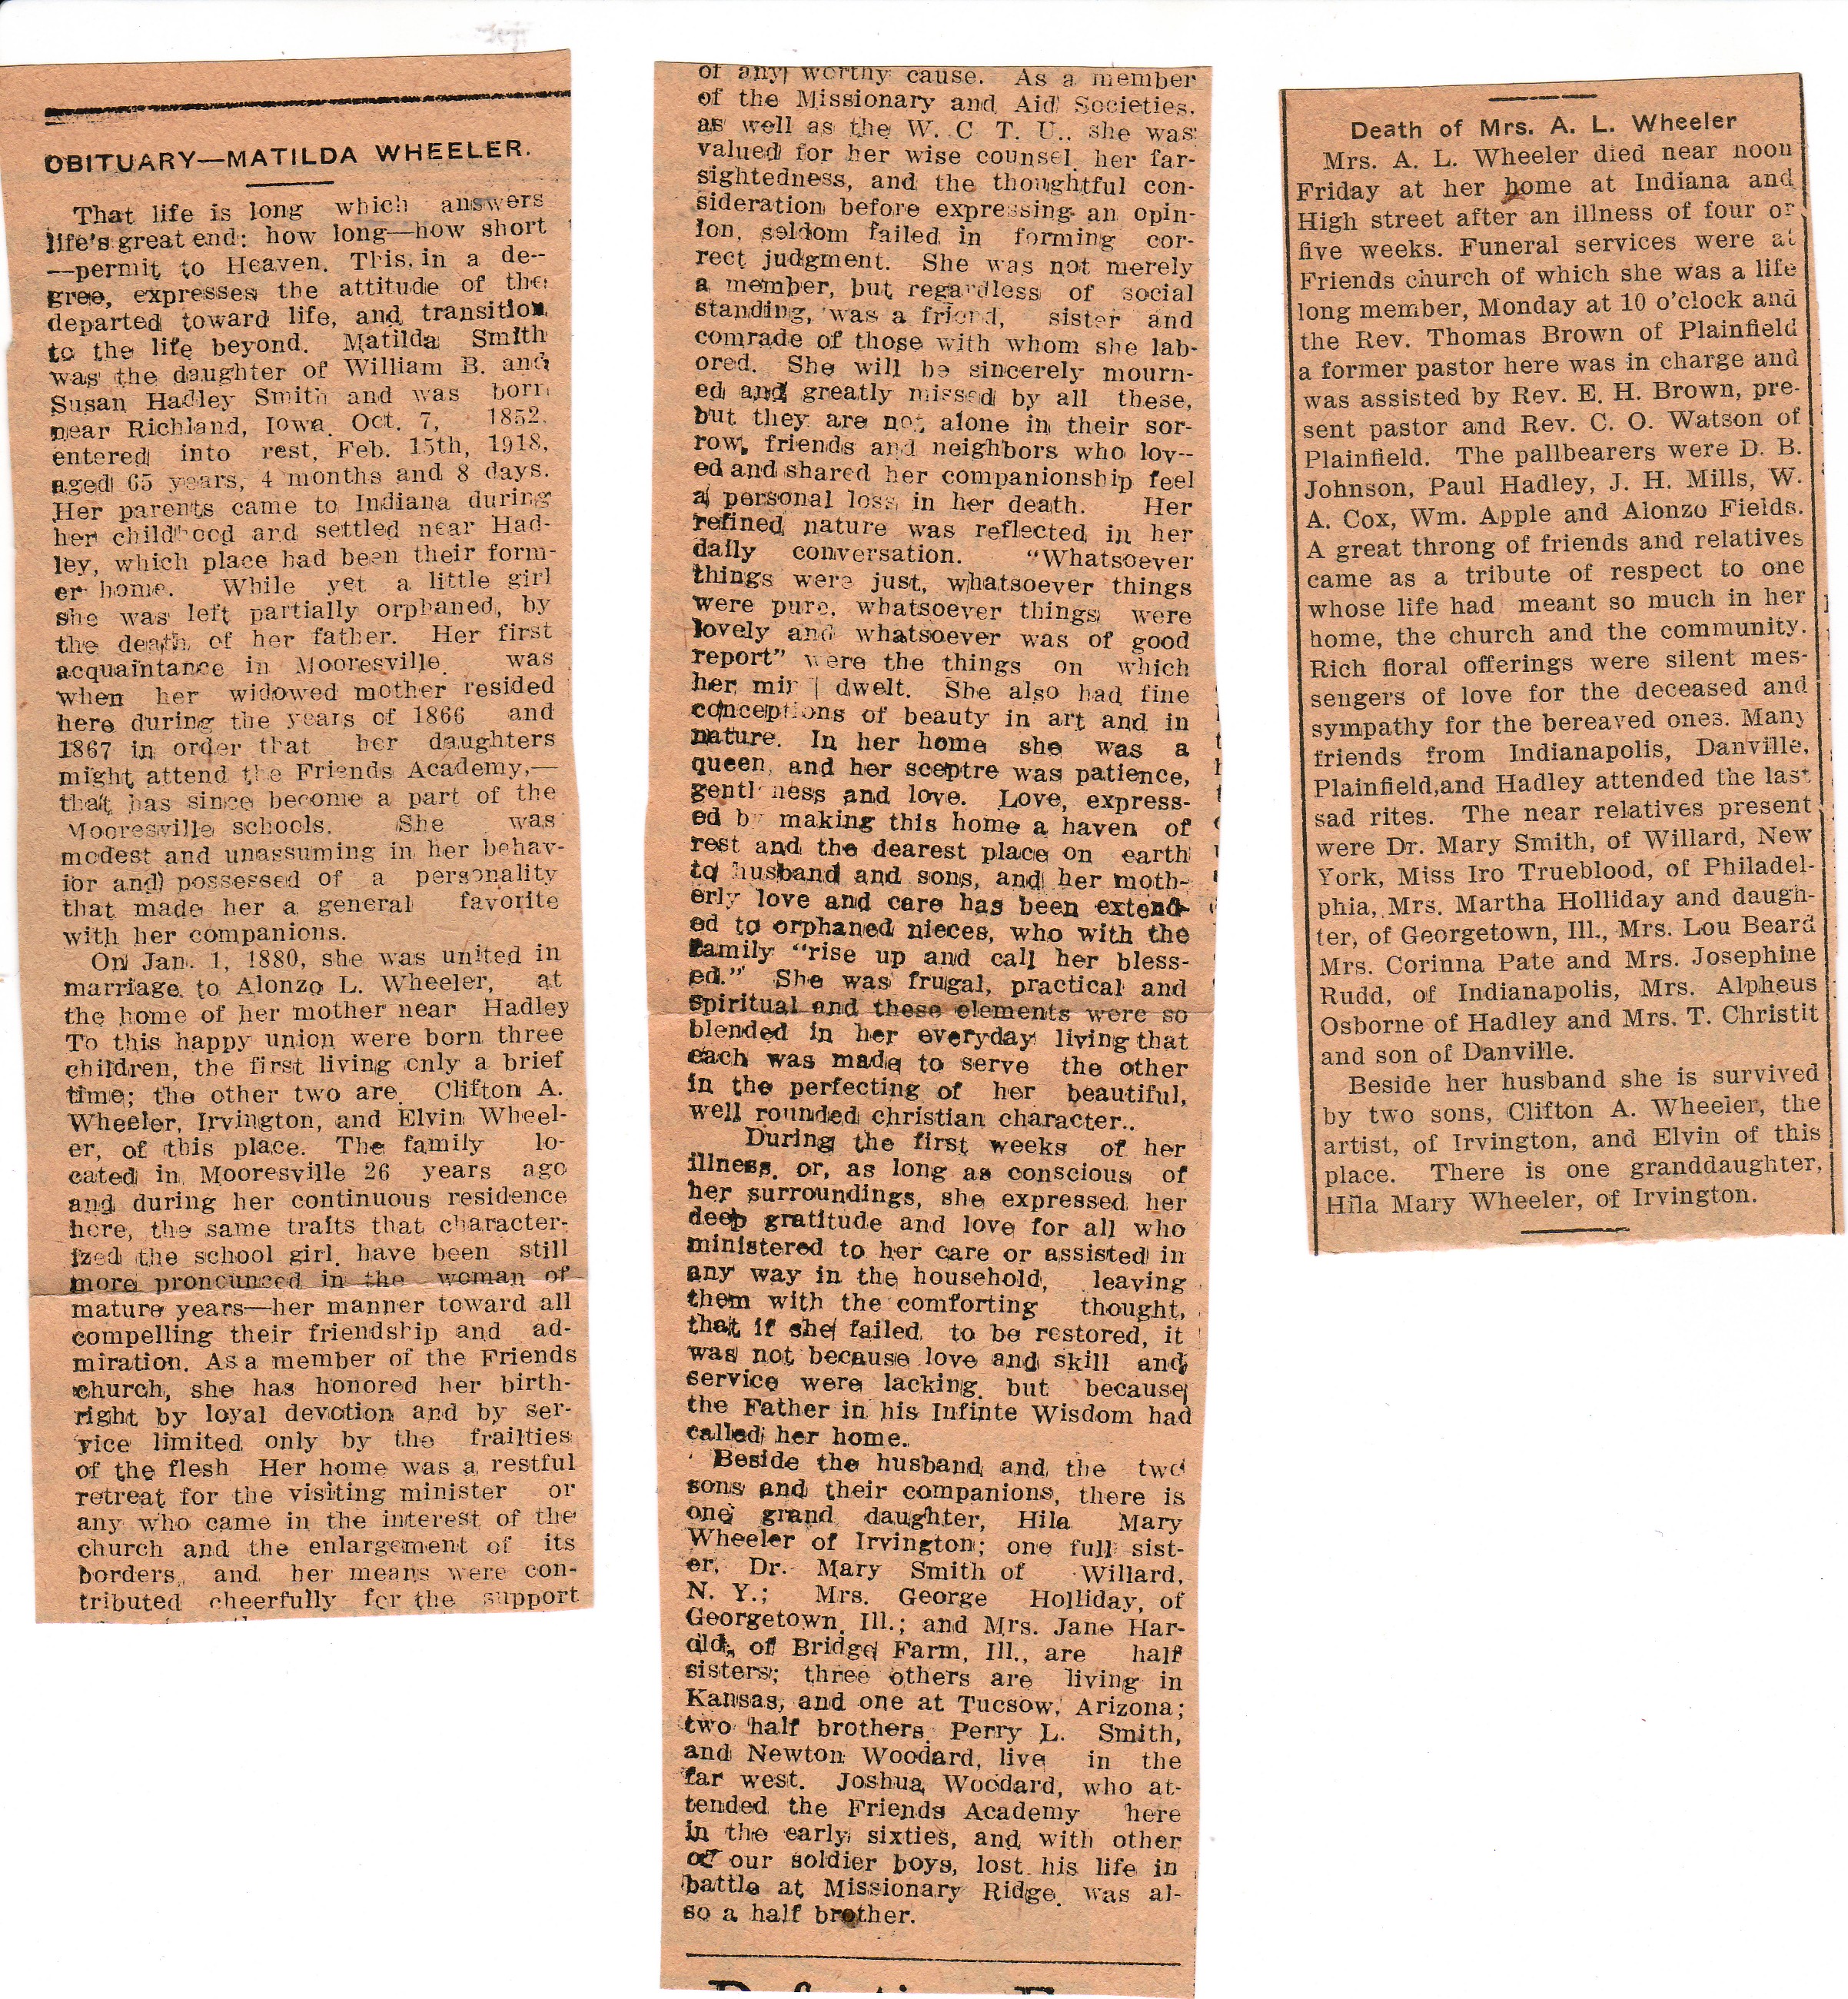 OBITUARY—MATILDA WHEELER.
That life is long which answers
life's great end: how long—how short
—permit to Heaven. This, in a de-
gree, expresses the attitude of the
departed toward life, and transition
to the life beyond. Matilda Smith
was the daughter of William B. and
Susan Hadley Smith and was born
near Richland, Iowa. Oct. 7, 1852.
entered into rest, Feb. 15th, 1918,
aged 65 years, 4 months and 8 days.
Her parents came to Indiana during
her childhood and settled near Had-
ley, which place had been their form-
er home. While yet a little girl
she was left partially orphaned, by
the death of her father. Her first
acquaintance in Mooresville was
when her widowed mother resided
here during the years of 1866 and
1867 in order that her daughters
might attend the Friends Academy,—
that has since become a part of the
Mooresville schools. She was
modest and unassuming in her behav-
ior and possessed of a personality
that made her a general favorite
with her companions.
On Jan. 1, 1880, she was united in
marriage to Alonzo L. Wheeler, at
the home of her mother near Hadley
To this happy union were born three
children, the first living only a brief
time; the other two are Clifton A.
Wheeler, Irvington, and Elvin Wheel-
er, of this place. The family lo-
cated in Mooresville 26 years ago
and during her continuous residence
here, the same traits that character-
ized the school girl, have been still
more pronounced in the woman of
mature years—her manner toward all
compelling their friendship and ad-
miration. As a member of the Friends
church, she has honored her birth-
right by loyal devotion and by ser-
vice limited only by the frailties
of the flesh Her home was a restful
retreat for the visiting minister or
any who came in the interest of the
church and the enlargement of its
borders, and her means were con-
tributed cheerfully for the support
of any worthy cause. As a member
of the Missionary and Aid Societies,
as well as the W. C T. U., she was
valued for her wise counsel, her far-
sightedness, and the thoughtful con-
sideration before expressing an opin-
ion, seldom failed in forming cor-
rect judgment. She was not merely
a member, but regardless of social
standing, was a friend, sister and
comrade of those with whom she lab-
ored. She will be sincerely mourn-
ed and greatly missed by all these,
but they are not alone in their sor-
row, friends and neighbors who lov-
ed and shared her companionship feel
a personal loss in her death. Her
refined nature was reflected in her
daily conversation. "Whatsoever
things were just, whatsoever things
were pure, whatsoever things were
lovely and whatsoever was of good
report" were the things on which
her mind dwelt. She also had fine
conceptions of beauty in art and in
nature. In her home she was a
queen, and her sceptre was patience,
gentleness and love. Love, express-
ed by making this home a haven of
rest and the dearest place on earth
to husband and sons, and her moth-
erly love and care has been extend-
ed to orphaned nieces, who with the
family "rise up and call her bless-
ed." She was frugal, practical and
spiritual and these elements were so
blended in her everyday living that
each was made to serve the other
in the perfecting of her beautiful,
well rounded christian character..
During the first weeks of her
illness, or, as long as conscious of
her surroundings, she expressed her
deep gratitude and love for all who
ministered to her care or assisted in
any way in the household, leaving
them with the comforting thought,
that if she failed to be restored, it
was not because love and skill and
service were lacking but because
the Father in his Infinte Wisdom had
called her home.
Beside the husband and the two
sons and their companions, there is
one grand daughter, Hila Mary
Wheeler of Irvington; one full sist-
er, Dr. Mary Smith of Willard,
N. Y.; Mrs. George Holliday, of
Georgetown, Ill.; and Mrs. Jane Har-
old, of Bridge Farm, Ill., are half
sisters; three others are living in
Kansas, and one at Tucsow, Arizona;
two half brothers Perry L. Smith,
and Newton Woodard, live in the
far west. Joshua Woodard, who at-
tended the Friends Academy here
in the early sixties, and with other
of our soldier boys, lost his life in
battle at Missionary Ridge, was al-
so a half brother.
Death of Mrs. A. L. Wheeler
Mrs. A. L. Wheeler died near noon
Friday at her home at Indiana and
High street after an illness of four or
five weeks. Funeral services were at
Friends church of which she was a life
long member, Monday at 10 o'clock and
the Rev. Thomas Brown of Plainfield
a former pastor here was in charge and
was assisted by Rev. E. H. Brown, pre-
sent pastor and Rev. C. O. Watson of
Plainfield. The pallbearers were D. B.
Johnson, Paul Hadley, J. H. Mills, W.
A. Cox, Wm. Apple and Alonzo Fields.
A great throng of friends and relatives
came as a tribute of respect to one
whose life had meant so much in her
home, the church and the community.
Rich floral offerings were silent mes-
sengers of love for the deceased and
sympathy for the bereaved ones. Many
friends from Indianapolis, Danville,
Plainfield,and Hadley attended the last
sad rites. The near relatives present
were Dr. Mary Smith, of Willard, New
York, Miss Iro Trueblood, of Philadel-
phia, Mrs. Martha Holliday and daugh-
ter, of Georgetown, Ill., Mrs. Lou Beard
Mrs. Corinna Pate and Mrs. Josephine
Rudd, of Indianapolis, Mrs. Alpheus
Osborne of Hadley and Mrs. T. Christit
and son of Danville.
Beside her husband she is survived
by two sons, Clifton A. Wheeler, the
artist, of Irvington, and Elvin of this
place. There is one granddaughter,
Hila Mary Wheeler, of Irvington.